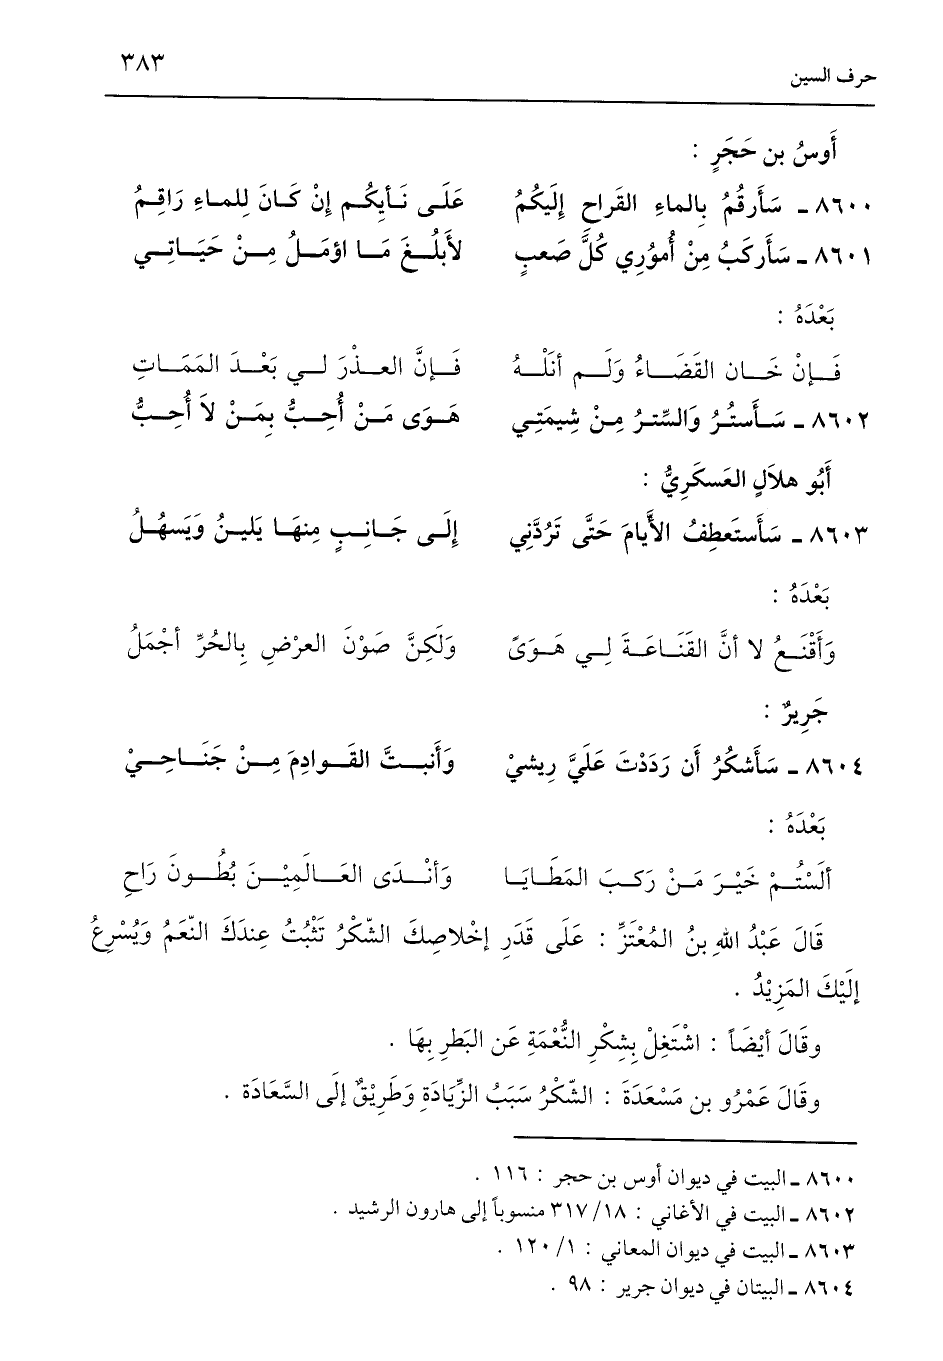 حرف السين ٣٨٣
أَوسُ بن حَجَرٍ :
٨٦٠٠ ـ سَأَرقُمُ بِالماءِ القَراحِ إِلَيكُمُ عَلَى نَأيِكُم إِنْ كَانَ لِلماءِ رَاقِمُ
٨٦٠١ ـ سَأَركَبُ مِنْ أُمُوُرِي كُلَّ صَعبٍ لأَبلُغَ مَا اؤمَلُ مِنْ حَيَاتِي
بَعْدَهُ :
فَإِنْ خَان القَضَاءُ وَلَم أنَلْهُ فَإِنَّ العذْرَ لي بَعْدَ المَمَاتِ
٨٦٠٢ ـ سَأَستُرُ وَالسِّترُ مِنْ شِيمَتِي هَوَى مَنْ أُحِبُّ بِمَنْ لاَ أُحِبُّ
أَبُو هلاَلٍ العَسكَرِيُّ :
٨٦٠٣ ـ سَأَستَعطِفُ الأَيامَ حَتَّى تَرُدَّنِي إِلَى جَانِبٍ مِنهَا يَلينُ وَيَسهُلُ
بَعْدَهُ :
وَأَقْنَعُ لا أنَّ القَنَاعَةَ لِي هَوَىً وَلَكِنَّ صَوْنَ العرْضِ بِالحُرِّ أجْمَلُ
جَرِيرٌ :
٨٦٠٤ ـ سَأَشكُرُ أَن رَدَدْتَ عَلَيَّ رِيشيْ وَأَنبتَّ القَوادِمَ مِنْ جَنَاحِيْ
بَعْدَهُ :
ألَسْتُمْ خَيْرَ مَنْ رَكبَ المَطَايَا وَأنْدَى العَالَمِيْنَ بُطُونَ رَاحِ
قَالَ عَبْدُ اللهِ بنُ المُعْتَزِّ : عَلَى قَدَرِ إخْلاصِكَ الشّكْرُ تَثْبُتُ عِندَكَ النّعَمُ وَيُسْرِعُ
إلَيْكَ المَزِيْدُ .
وقَالَ أيْضَاً : اشْتَغِلْ بِشكْرِ النُّعْمَةِ عَن البَطرِ بِهَا .
وقَالَ عَمْرُو بن مَسْعَدَةَ : الشّكْرُ سَبَبُ الزِّيَادَةِ وَطَرِيْقٌ إلَى السَّعَادَة .
٨٦٠٠ ـ البيت في ديوان أوس بن حجر : ١١٦ .
٨٦٠٢ ـ البيت في الأغاني : ١٨/ ٣١٧ منسوباً إلى هارون الرشيد .
٨٦٠٣ ـ البيت في ديوان المعاني : ١/ ١٢٠ .
٨٦٠٤ ـ البيتان في ديوان جرير : ٩٨ .